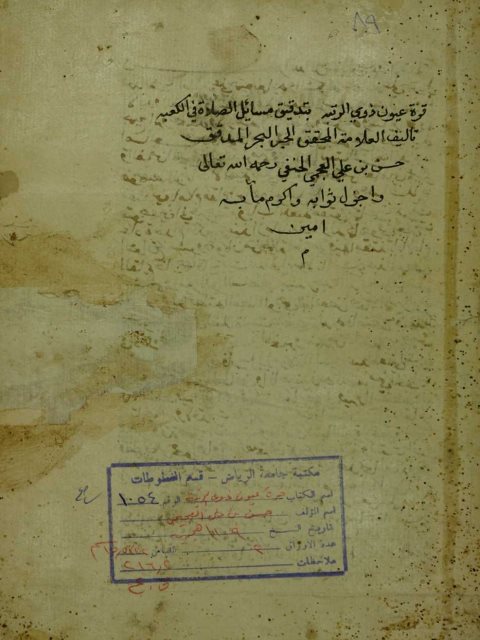 ٨٩
قرة عيون ذوي الرتبه بتدقيق مسائل الصلاة في الكعبه
تأليف العلامة المحقق الحبر البحر المدقق
حسن بن علي العجمي الحنفي رحمه الله تعالى
واجزل ثوابه واكرم مآبه
امين
م
مكتبة جامعة الرياض - قسم المخطوطات
اسم الكتاب قرة عيون ذوي الرتبة الرقم ١٠٥٤
اسم المؤلف حسن بن علي العجيمي
تاريخ النسخ
عدد الأوراق
ملاحظات ٢١٦٫٤